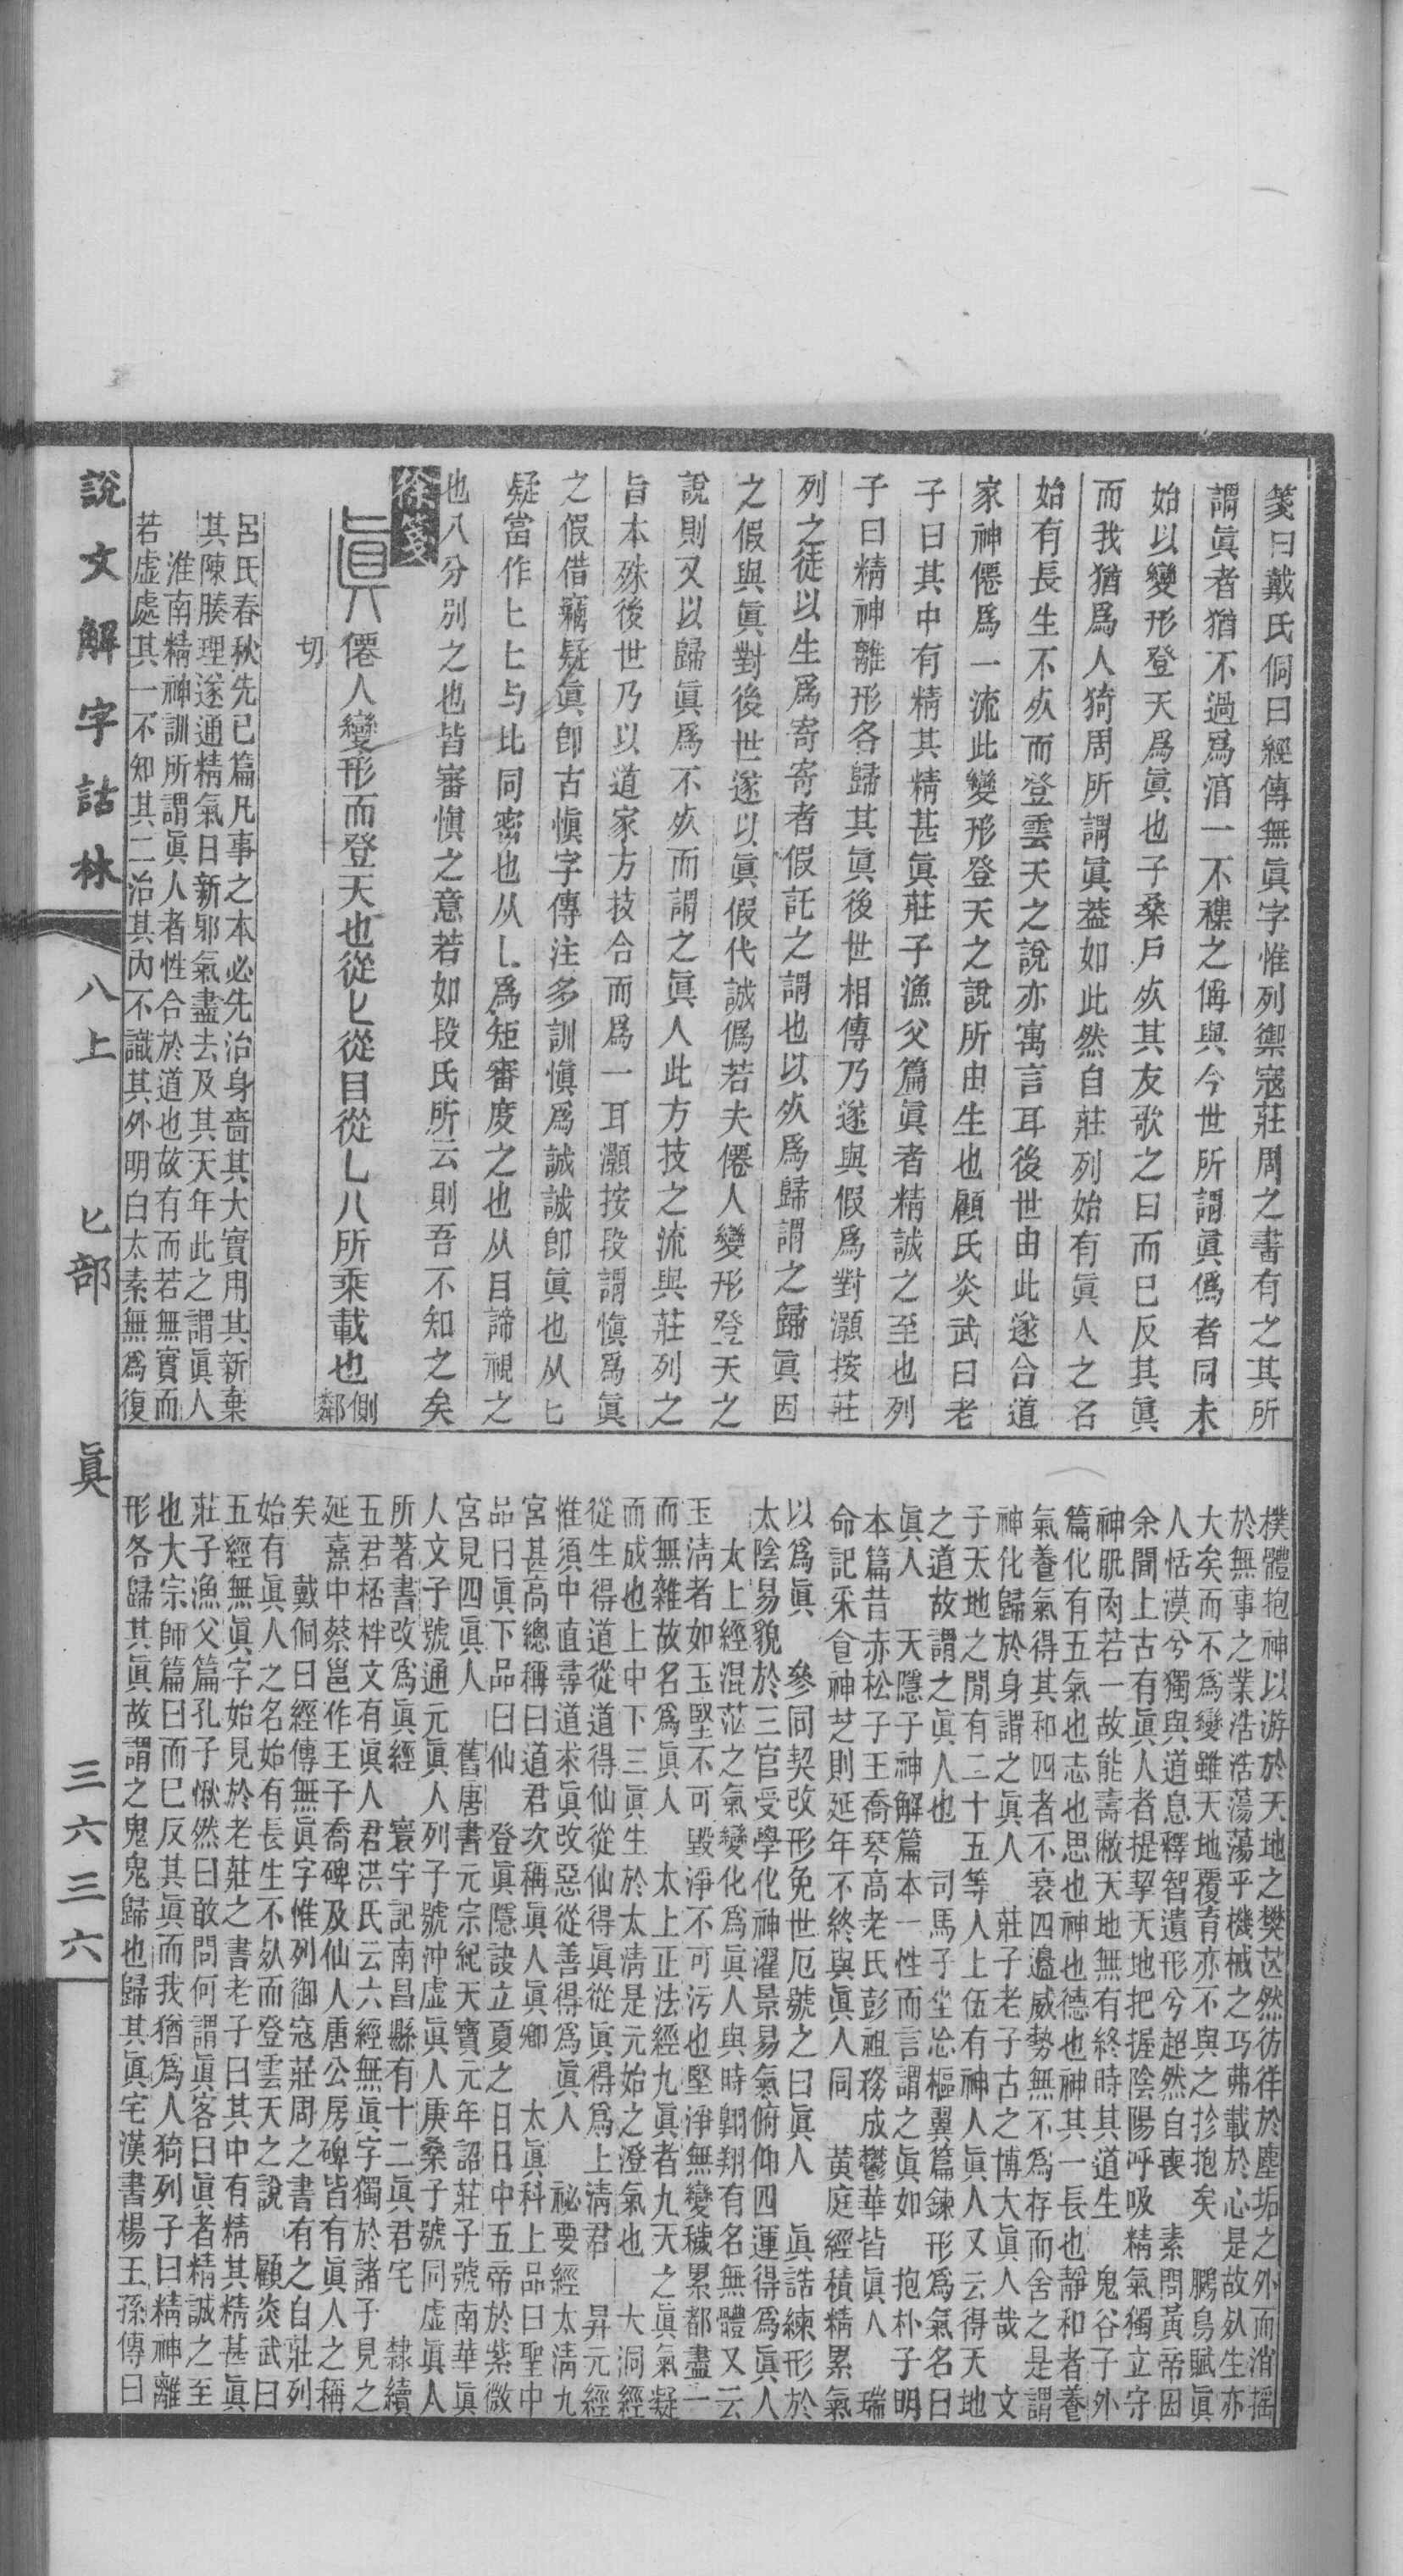 箋曰戴氏侗曰經傳無眞字惟列禦寇莊周之書有之其所
謂眞者猶不過爲㵎一不穕之偁與今世所謂眞僞者同未
始以變形登天爲眞也子桑戶㱙其友歌之曰而已反其眞
而我猶爲人猗周所謂眞葢如此然自莊列始有眞人之名
始有長生不㱙而登雲天之說亦寓言耳後世由此遂合道
家神僊爲一流此變形登天之說所由生也顧氏炎武曰老
子曰其中有精其精甚眞莊子漁父篇眞者精誠之至也列
子曰精神離形各歸其眞後世相傳乃遂與假爲對灝按莊
列之徒以生爲寄寄者假託之謂也以㱙爲歸謂之歸眞因
之假與眞對後世遂以眞假代誠僞若夫僊人變形登天之
說則又以歸眞爲不㱙而謂之眞人此方技之流與莊列之
旨本殊後世乃以道家方技合而爲一耳灝按段謂愼爲眞
之假借竊疑眞卽古愼字傳注多訓愼爲誠誠卽眞也从匕
疑當作匕匕与比同密也从乚爲矩審度之也从目諦視之
也八分別之也皆審愼之意若如段氏所云則吾不知之矣
眞 僊人變形而登天也從匕從目從乚八所乘載也側鄰
切
呂氏春秋先已篇凡事之本必先治身嗇其大實用其新棄
其陳腠理遂通精氣日新邪氣盡去及其天年此之謂眞人
淮南精神訓所謂眞人者性合於道也故有而若無實而
若虛處其一不知其二治其內不識其外明白太素無爲復
樸體抱神以游於天地之樊芒然彷徉於塵垢之外而消搖
於無事之業浩浩蕩蕩乎機械之巧弗載於心是故㱙生亦
大矣而不爲變雖天地覆育亦不與之抮抱矣 鵩鳥賦眞
人恬漠兮獨與道息釋智遺形兮超然自喪 素問黃帝曰
余聞上古有眞人者提挈天地把握陰陽呼吸精氣獨立守
神肌肉若一故能壽敝天地無有終時其道生 鬼谷子外
篇化有五氣也志也思也神也德也神其一長也靜和者養
氣養氣得其和四者不衰四邊威勢無不爲存而舍之是謂
神化歸於身謂之眞人 莊子老子古之博大眞人哉 文
子天地之閒有二十五等人上伍有神人眞人又云得天地
之道故謂之眞人也 司馬子坐忘樞翼篇鍊形爲氣名曰
眞人 天隱子神解篇本一性而言謂之眞如 抱朴子明
本篇昔赤松子王喬琴高老氏彭祖務成鬱華皆眞人 瑞
命記采會神芝則延年不終與眞人同 黃庭經積精累氣
以爲眞 參同契改形免世厄號之曰眞人 眞誥練形於
太陰易貌於三官受學化神濯景易氣俯仰四運得爲眞人
太上經混茫之氣變化爲眞人與時翺翔有名無體又云
玉淸者如玉堅不可毀淨不可污也堅淨無變穢累都盡一
而無雜故名爲眞人 太上正法經九眞者九天之眞氣凝
而成也上中下三眞生於太淸是元始之澄氣也 大洞經
從生得道從道得仙從仙得眞從眞得爲上淸君 昇元經
惟須中直尋道求眞改惡從善得爲眞人 祕要經太淸九
宮甚高總稱曰道君次稱眞人眞卿 太眞科上品曰聖中
品曰眞下品曰仙 登眞隱訣立夏之日日中五帝於紫微
宮見四眞人 舊唐書元宗紀天寶元年詔莊子號南華眞
人文子號通元眞人列子號沖虛眞人庚桑子號同虛眞人
所著書改爲眞經 寰宇記南昌縣有十二眞君宅 隸續
五君桮柈文有眞人君洪氏云六經無眞字獨於諸子見之
延熹中蔡邕作王子喬碑及仙人唐公房碑皆有眞人之稱
矣 戴侗曰經傳無眞字惟列御寇莊周之書有之自莊列
始有眞人之名始有長生不㱙而登雲天之說 顧炎武曰
五經無眞字始見於老莊之書老子曰其中有精其精甚眞
莊子漁父篇孔子愀然曰敢問何謂眞客曰眞者精誠之至
也大宗師篇曰而已反其眞而我猶爲人猗列子曰精神離
形各歸其眞故謂之鬼鬼歸也歸其眞宅漢書楊王孫傳曰
徐箋
說文解字詁林
八上
匕部
眞
三六三六